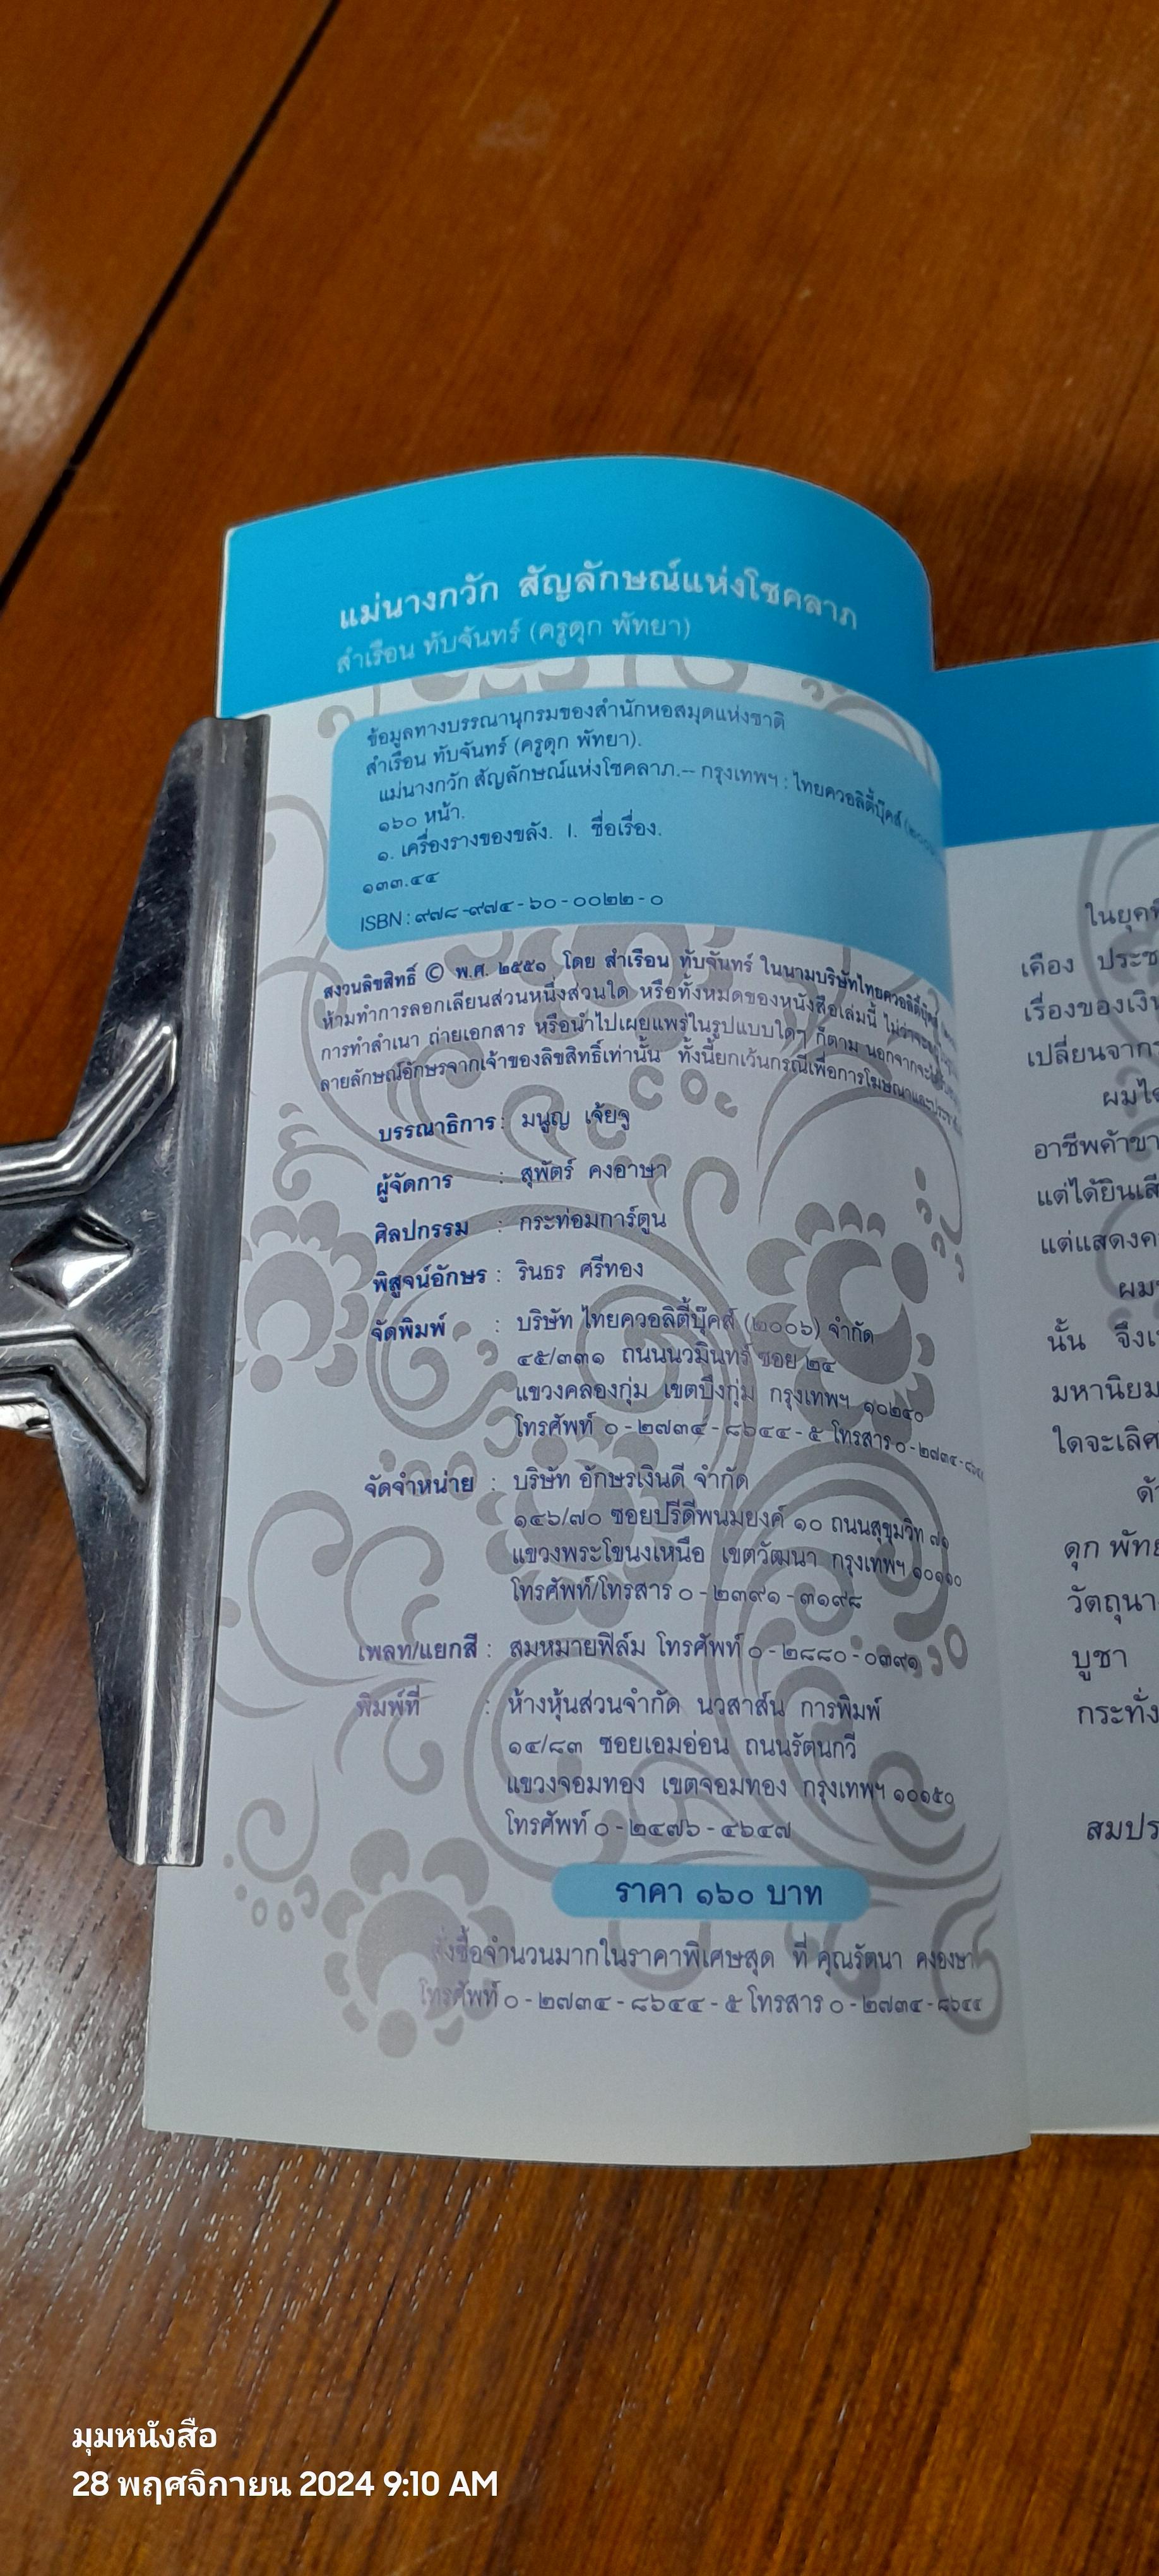 แม่นางกวัก สัญลักษณ์แห่งโชคลาภ
สำเรือน ทับจันทร์ (ครูดุก พัทยา)
ข้อมูลทางบรรณานุกรมของสำนักหอสมุดแห่งชาติ
สำเรือน ทับจันทร์ (ครูดุก พัทยา).
แม่นางกวัก สัญลักษณ์แห่งโชคลาภ.-- กรุงเทพฯ : ไทยควอลิตี้บุ๊คส์
๑๖๐ หน้า.
๑. เครื่องรางของขลัง. I. ชื่อเรื่อง.
๑๓๓.๔๔
ISBN : ๙๗๘-๙๗๔-๖๐-๐๐๒๒-๐
สงวนลิขสิทธิ์ © พ.ศ. ๒๕๕๑ โดย สำเรือน ทับจันทร์ ในนามบริษัทไทยควอลิตี้บุ๊คส์
ห้ามทำการลอกเลียนส่วนหนึ่งส่วนใด หรือทั้งหมดของหนังสือเล่มนี้ ไม่ว่าจะ
การทำสำเนา ถ่ายเอกสาร หรือนำไปเผยแพร่ในรูปแบบใดๆ ก็ตาม นอกจากจะ
ลายลักษณ์อักษรจากเจ้าของลิขสิทธิ์เท่านั้น ทั้งนี้ยกเว้นกรณีเพื่อการโฆษณาและ
บรรณาธิการ : มนูญ เจ้ยจู
ผู้จัดการ : สุพัตร์ คงอาษา
ศิลปกรรม : กระท่อมการ์ตูน
พิสูจน์อักษร : รินธร ศรีทอง
จัดพิมพ์ : บริษัท ไทยควอลิตี้บุ๊คส์ (๒๐๐๖) จำกัด
๔๕/๓๓๑ ถนนนวมินทร์ ซอย ๒๔
แขวงคลองกุ่ม เขตบึงกุ่ม กรุงเทพฯ ๑๐๒๔๐
โทรศัพท์ ๐-๒๗๓๔-๘๖๔๔-๕ โทรสาร ๐-๒๗๓๔-
จัดจำหน่าย : บริษัท อักษรเงินดี จำกัด
๑๔๖/๗๐ ซอยปรีดีพนมยงค์ ๑๐ ถนนสุขุมวิท ๗๑
แขวงพระโขนงเหนือ เขตวัฒนา กรุงเทพฯ ๑๐๑๑๐
โทรศัพท์/โทรสาร ๐-๒๓๙๑-๓๑๙๘
เพลท/แยกสี : สมหมายฟิล์ม โทรศัพท์ ๐-๒๘๘๐-๐๓๙๑
พิมพ์ที่ : ห้างหุ้นส่วนจำกัด นวสาส์น การพิมพ์
๑๔/๘๓ ซอยเอมอ่อน ถนนรัตนกวี
แขวงจอมทอง เขตจอมทอง กรุงเทพฯ ๑๐๑๕๐
โทรศัพท์ ๐-๒๔๗๖-๔๖๔๗
ราคา ๑๖๐ บาท
สั่งซื้อจำนวนมากในราคาพิเศษสุด ที่ คุณรัตนา คงองษา
โทรศัพท์ ๐-๒๗๓๔-๘๖๔๔-๕ โทรสาร ๐-๒๗๓๔-๘๖๔๔
ในยุคที่
เคือง ประช
เรื่องของเงิน
เปลี่ยนจาก
ผมได้
อาชีพค้าขา
แต่ได้ยินเสี
แต่แสดงค
ผม
นั้น จึง
มหานิยม
ใดจะเลิศ
ด้
ดุก พัทย
วัตถุนา
บูชา
กระทั่ง
สมปร
มุมหนังสือ
28 พฤศจิกายน 2024 9:10 AM